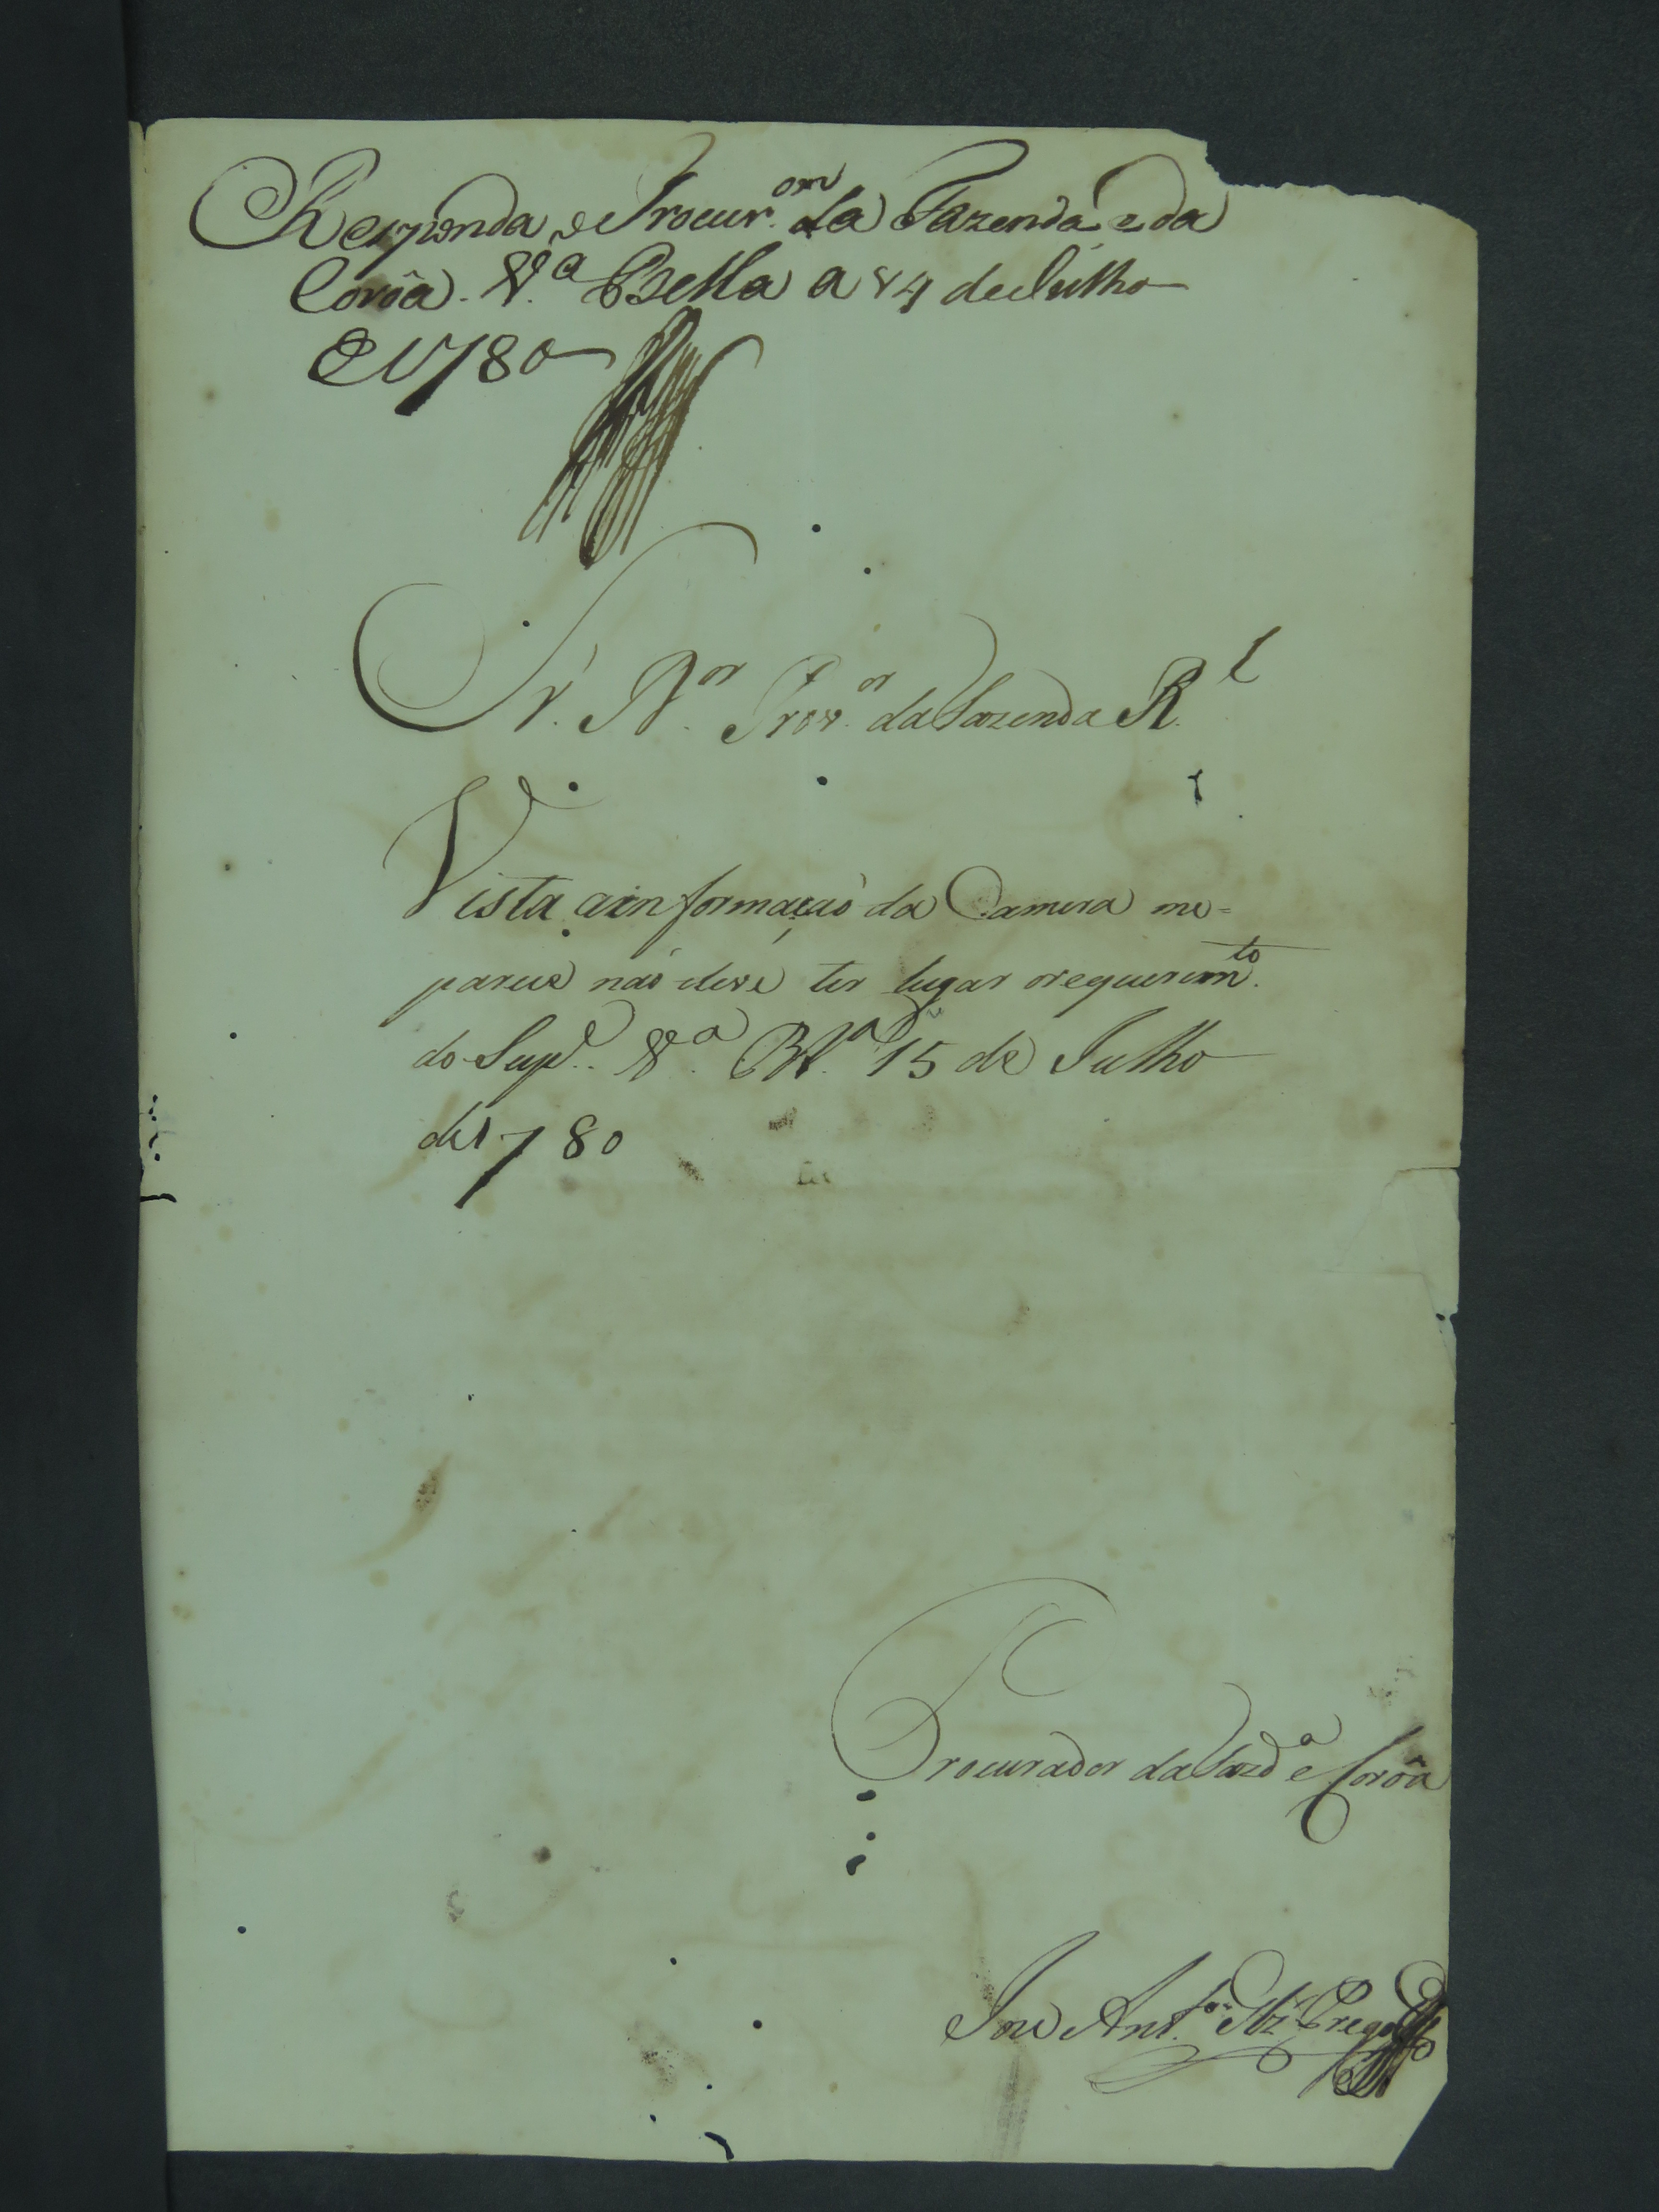 Responda o Procur.or da Fazenda e da
Corôa. V.a Bella a 14 de Julho
de 1780
Sr. Dor. Prov.or da Fazenda R.l
Vista a informação da Camera me=
parece não deve ter lugar orequerim.to
do Sup.e. V.a B.a 15 de Julho
de 1780
Procurador da Fazd.a e Corôa
Joze Ant.o Glz Prego